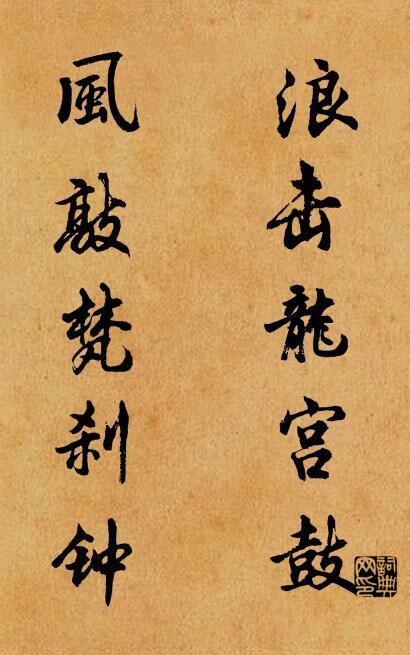 浪击龍宫鼓
風敲梵刹钟
詞典网印